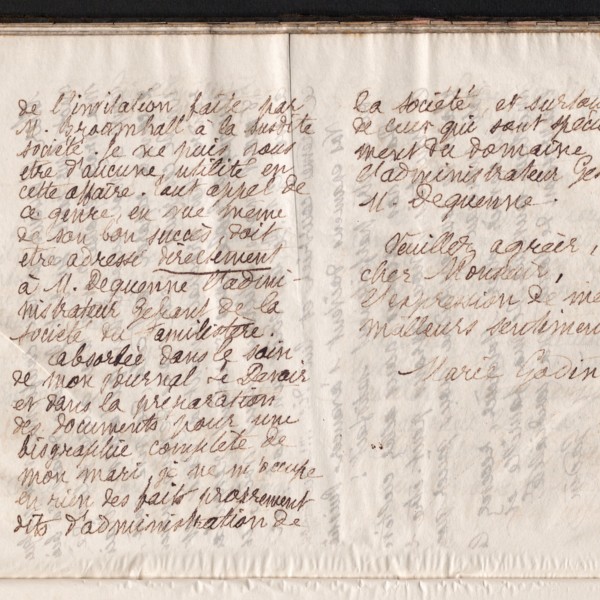 de l'invitation faite par
M. Broomhall à la susdite
société. Je ne puis vous
etre d'aucune utilité en
cette affaire. Tout appel de
ce genre, en vue même
de son bon succès, doit
etre adressé directement
à M. Dequenne l'admini-
nistrateur Gérant de la
société du Familistère.
absorbée dans le soin
de mon journal Le Devoir
et dans la préparation
des documents pour une
biographie complète de
mon mari, je ne m'occupe
en rien des faits proprement
dits d'administration de
la société et surtou
de ceux qui sont spécia
ment du domaine
l'administrateur Gé
M. Dequenne.
Veuillez agréer,
cher Monsieur,
l'expression de me
meilleurs sentiment
Marie Godin